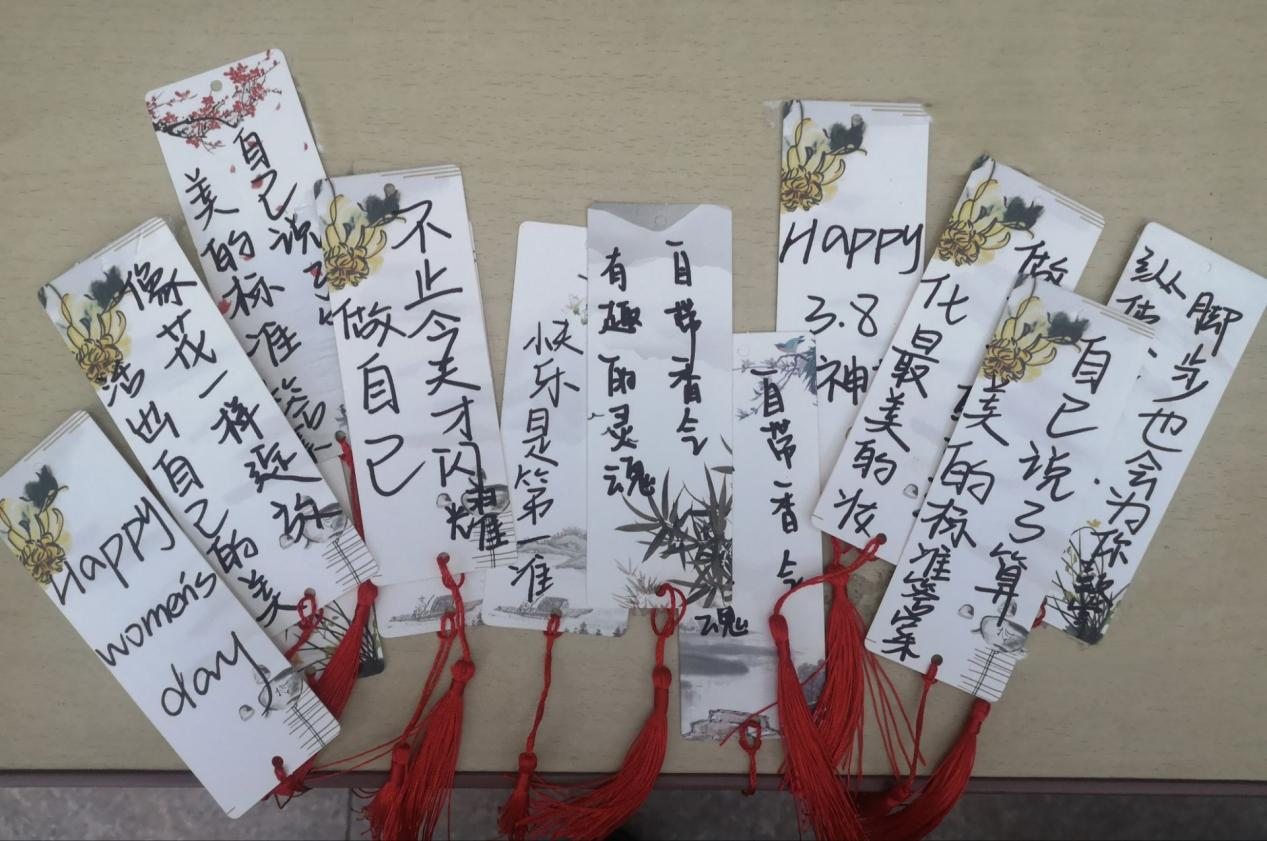 Happy
women's
day
像花一样绽放
活出自己的美
自己说
美的标准答
不止今天才闪耀
做自己
快乐是第一准
自带香气
有趣的灵魂
自带香气
魂
Happy
3.8
神
做
化最美的妆
自己说了算
美的标准答案
脚步也会为你
纵使